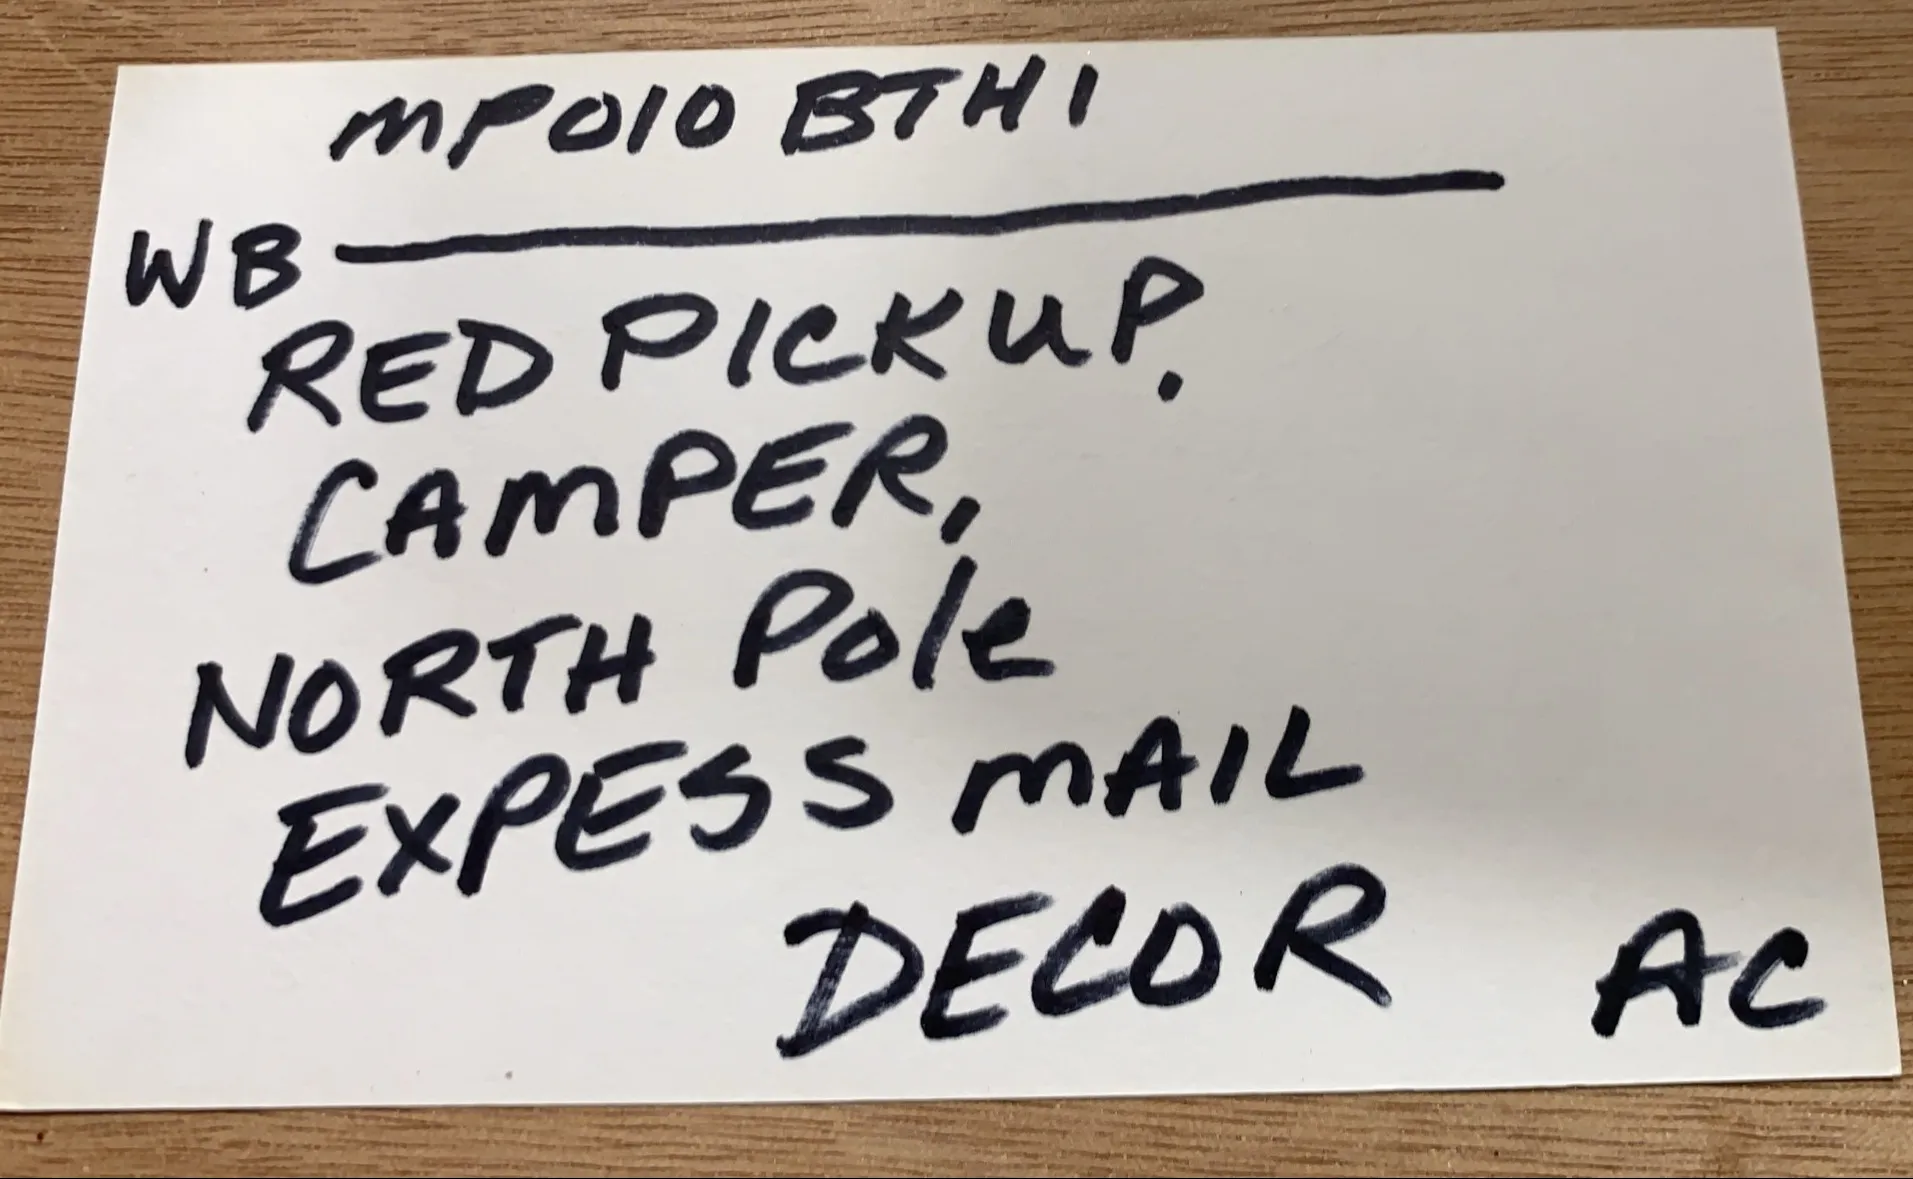 MPO10 BTH1
WB
RED PICKUP.
CAMPER,
NORTH Pole
EXPESS MAIL
DECOR AC